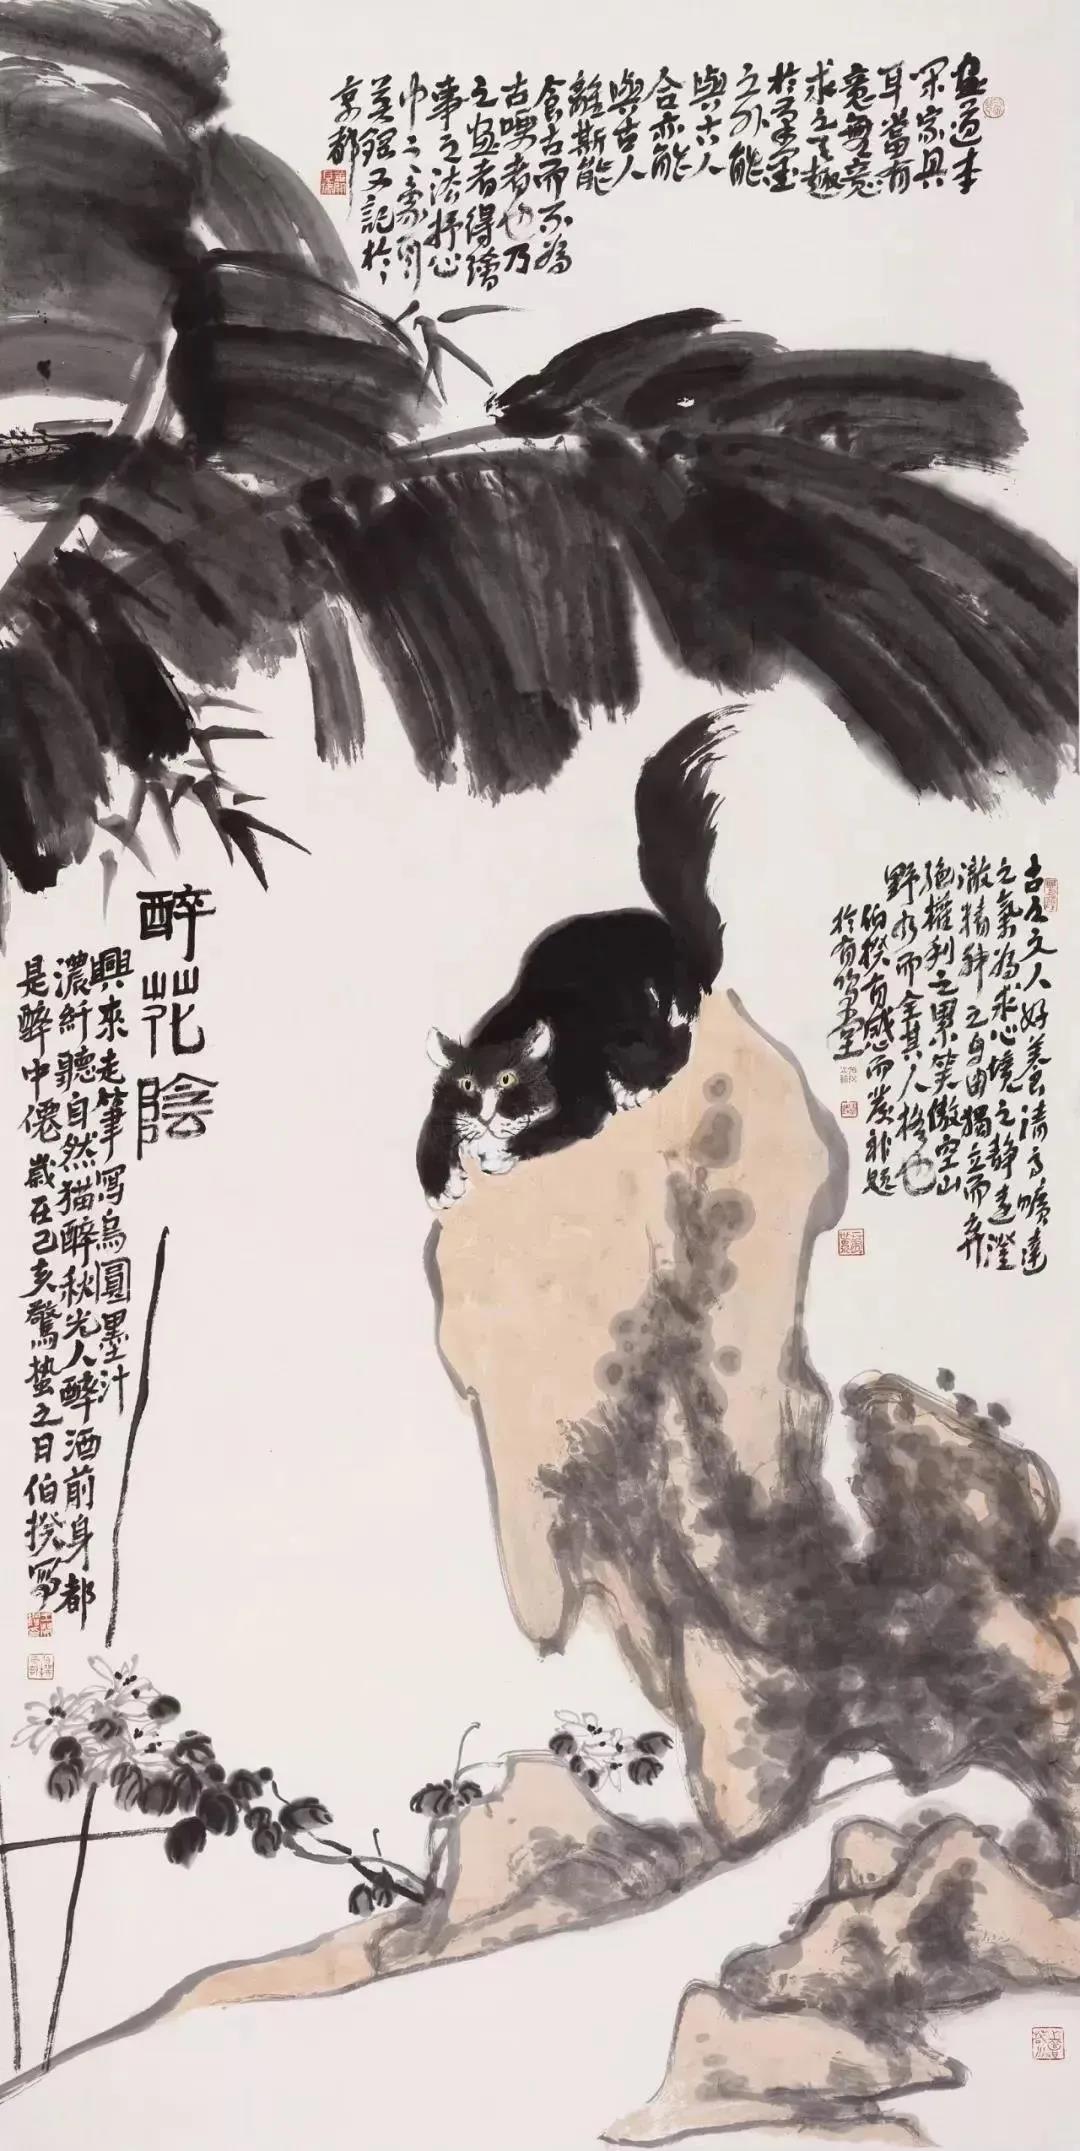 畫道本
閑家具
耳當有
意無意
求之天趣
於筆墨
之外能
與古人
合亦能
與古人
離斯能
食古而不為
古者也乃
之畫者得繪
事之法抒心
又記於
京都
古之文人好養清高曠達
之氣為求心境之靜遠澄
澈精神之自由獨立而棄
絕權利之累笑傲空山
野水而全其人格也
伯揆有感而發補題
於有竹堂
醉花陰
興來走筆寫烏圓墨汁
濃纖聽自然猫醉秋光人醉酒前身都
是醉中僊歲在己亥驚蟄之日伯揆寫